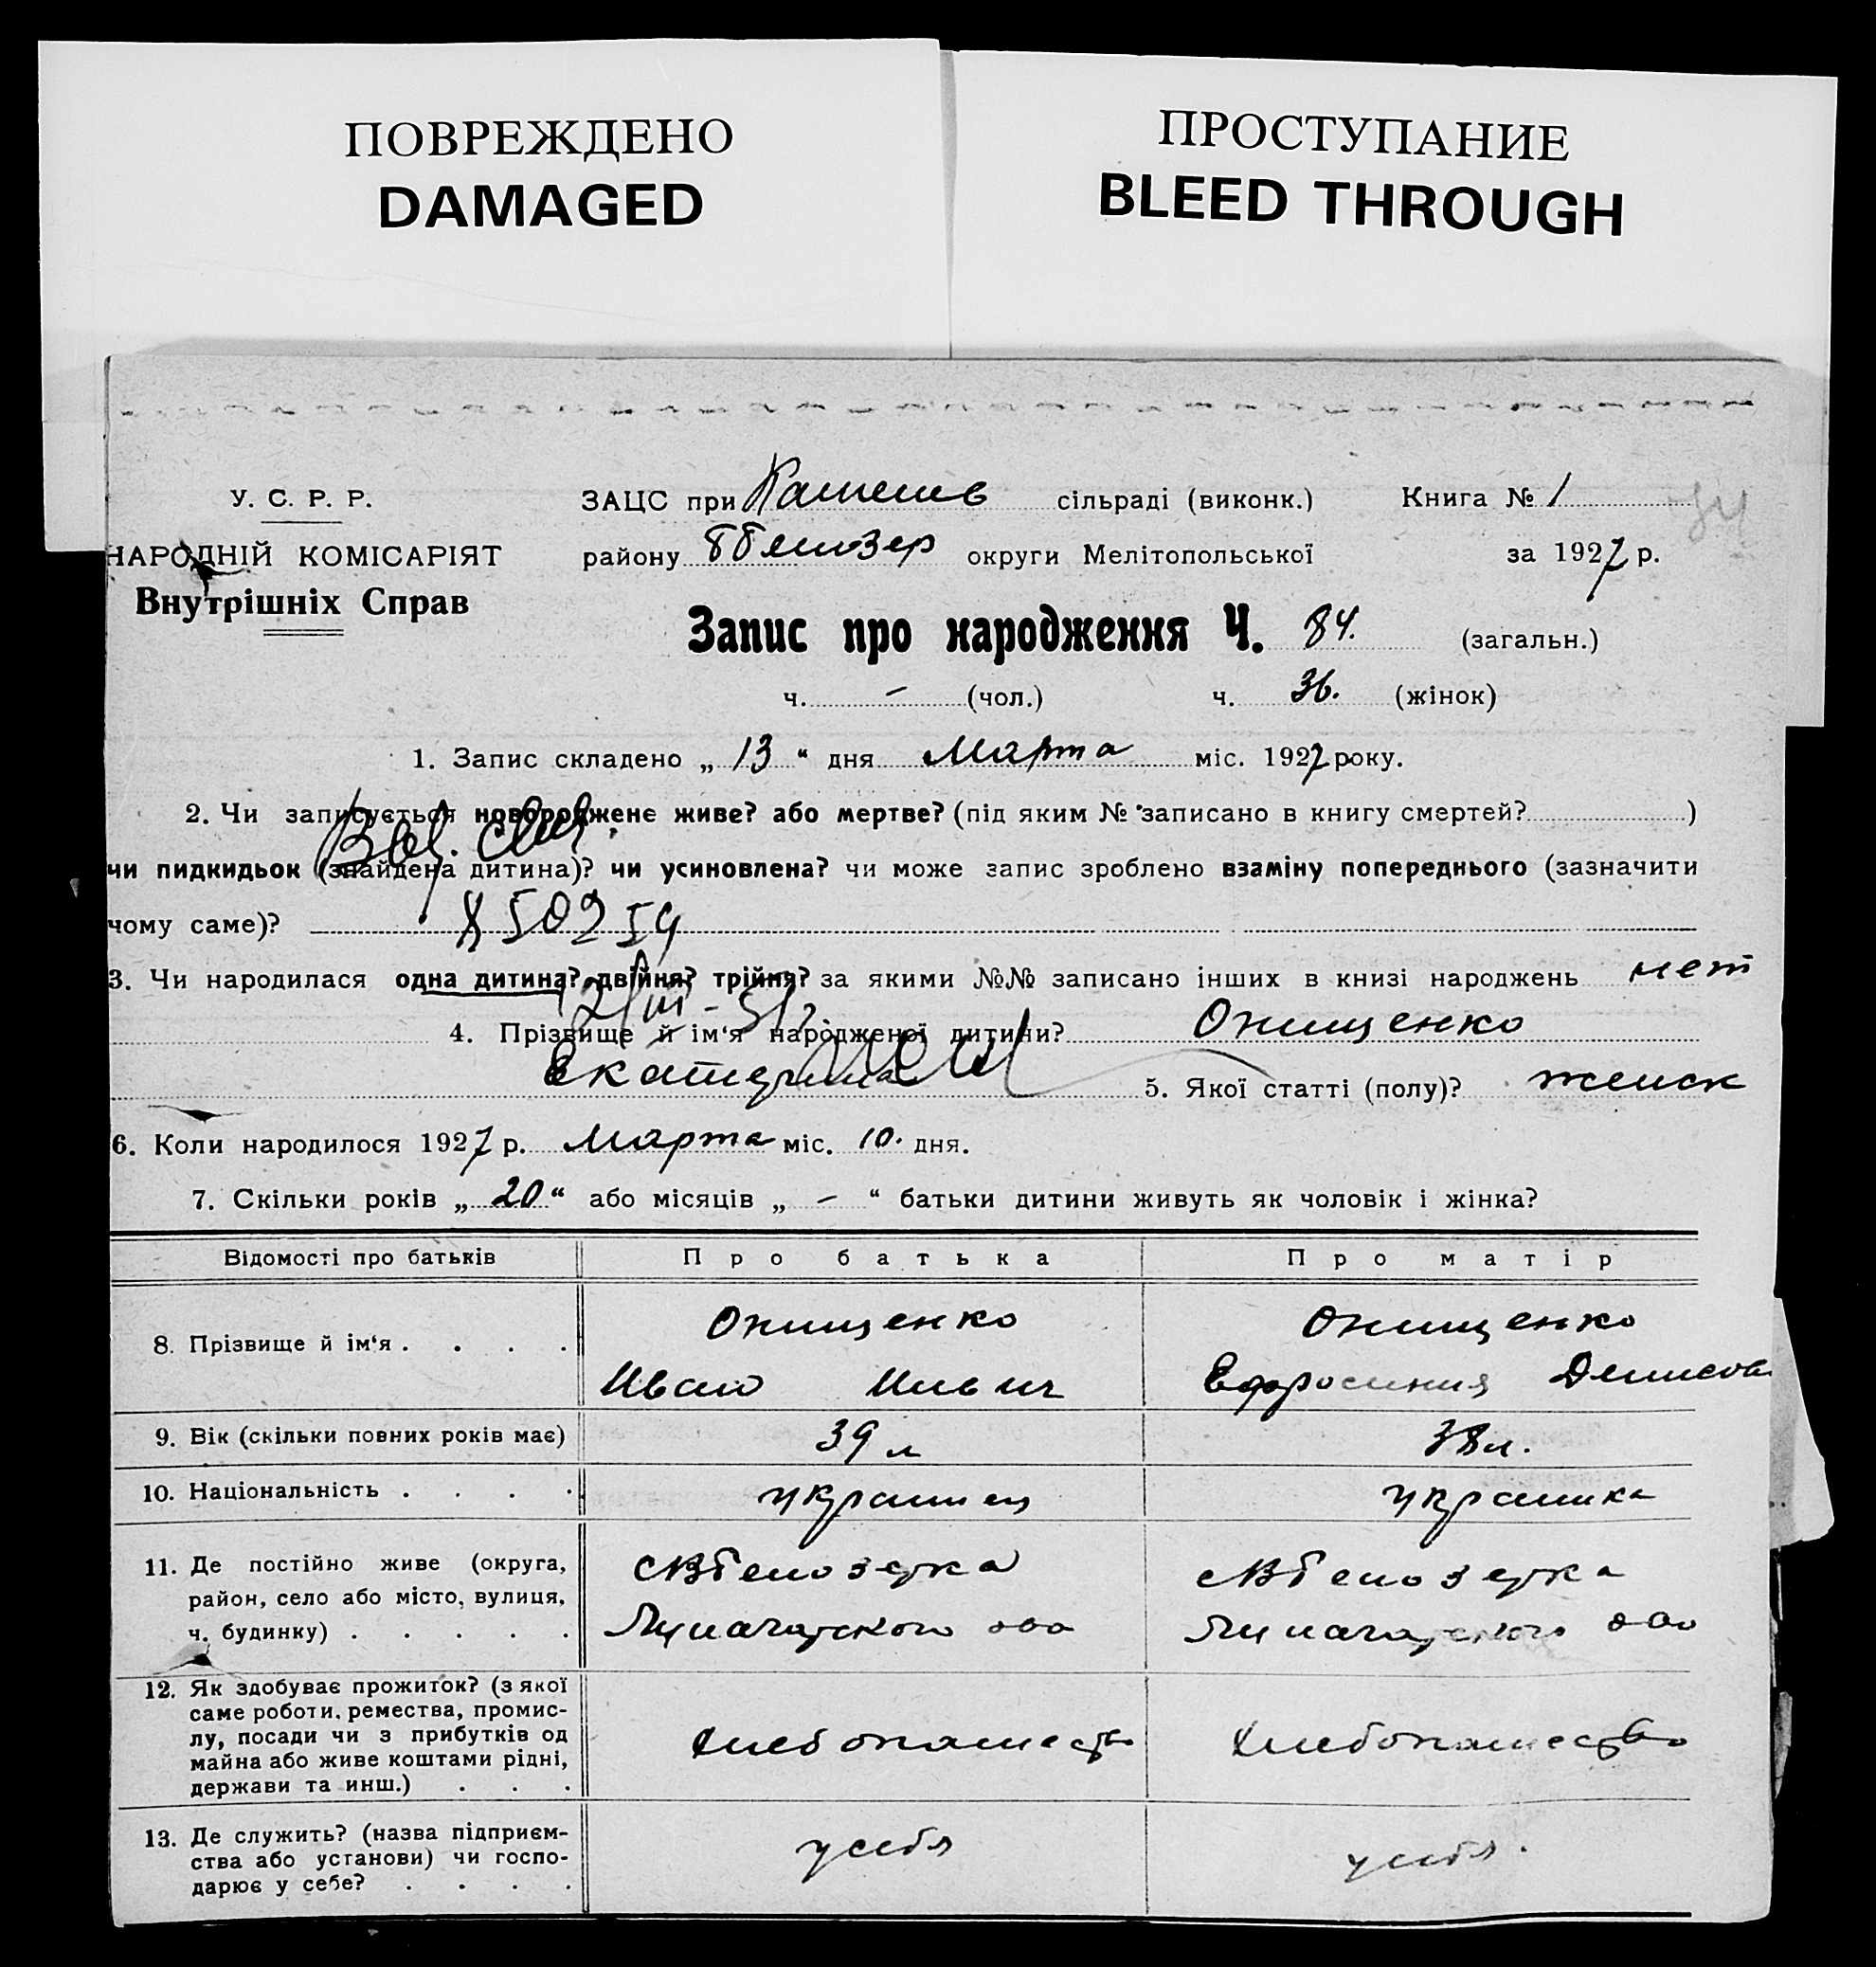 ПОВРЕЖДЕНО
DAMAGED
ПРОСТУПАНИЕ
BLEED THROUGH
У. С. Р. Р.
НАРОДНІЙ КОМІСАРІЯТ
Внутрішніх Справ
ЗАЦС при сільраді (виконк.) Книга № 1
району округи Мелітопольської за 1927 р.
Запис про народження Ч. 84. (загальн.)
ч. – (чол.) ч. 36. (жінок)
1. Запис складено „ 13 “ дня Марта міс. 1927 року.
2. Чи записується новороджене живе? або мертве? (під яким № записано в книгу смертей? )
чи пидкидьок (знайдена дитина)? чи усиновлена? чи може запис зроблено взаміну попереднього (зазначити
чому саме)?
3. Чи народилася одна дитина? двійня? трійня? за якими №№ записано інших в книзі народжень нет
4. Прізвище й ім‘я народженої дитини? Онищенко
Екатерина 5. Якої статті (полу)? женск
6. Коли народилося 1927 р. Марта міс. 10. дня.
7. Скільки років „ 20 “ або місяців „ – “ батьки дитини живуть як чоловік і жінка?
Відомості про батьків Про батька Про матір
8. Прізвище й ім‘я . . . . Онищенко Онищенко
Иван Ефросиния Денисов
9. Вік (скільки повних років має) 39 л 38 л.
10. Національність . . . . украинец украинка
11. Де постійно живе (округа,
район, село або місто, вулиця,
ч. будинку) . . . . .
12. Як здобуває прожиток? (з якої
саме роботи, ремества, промис-
лу, посади чи з прибутків од
майна або живе коштами рідні,
держави та инш.) . . .
хлебопашество хлебопашество
13. Де служить? (назва підприєм-
ства або установи) чи госпо-
дарює у себе? . . . .
у себя у себя.